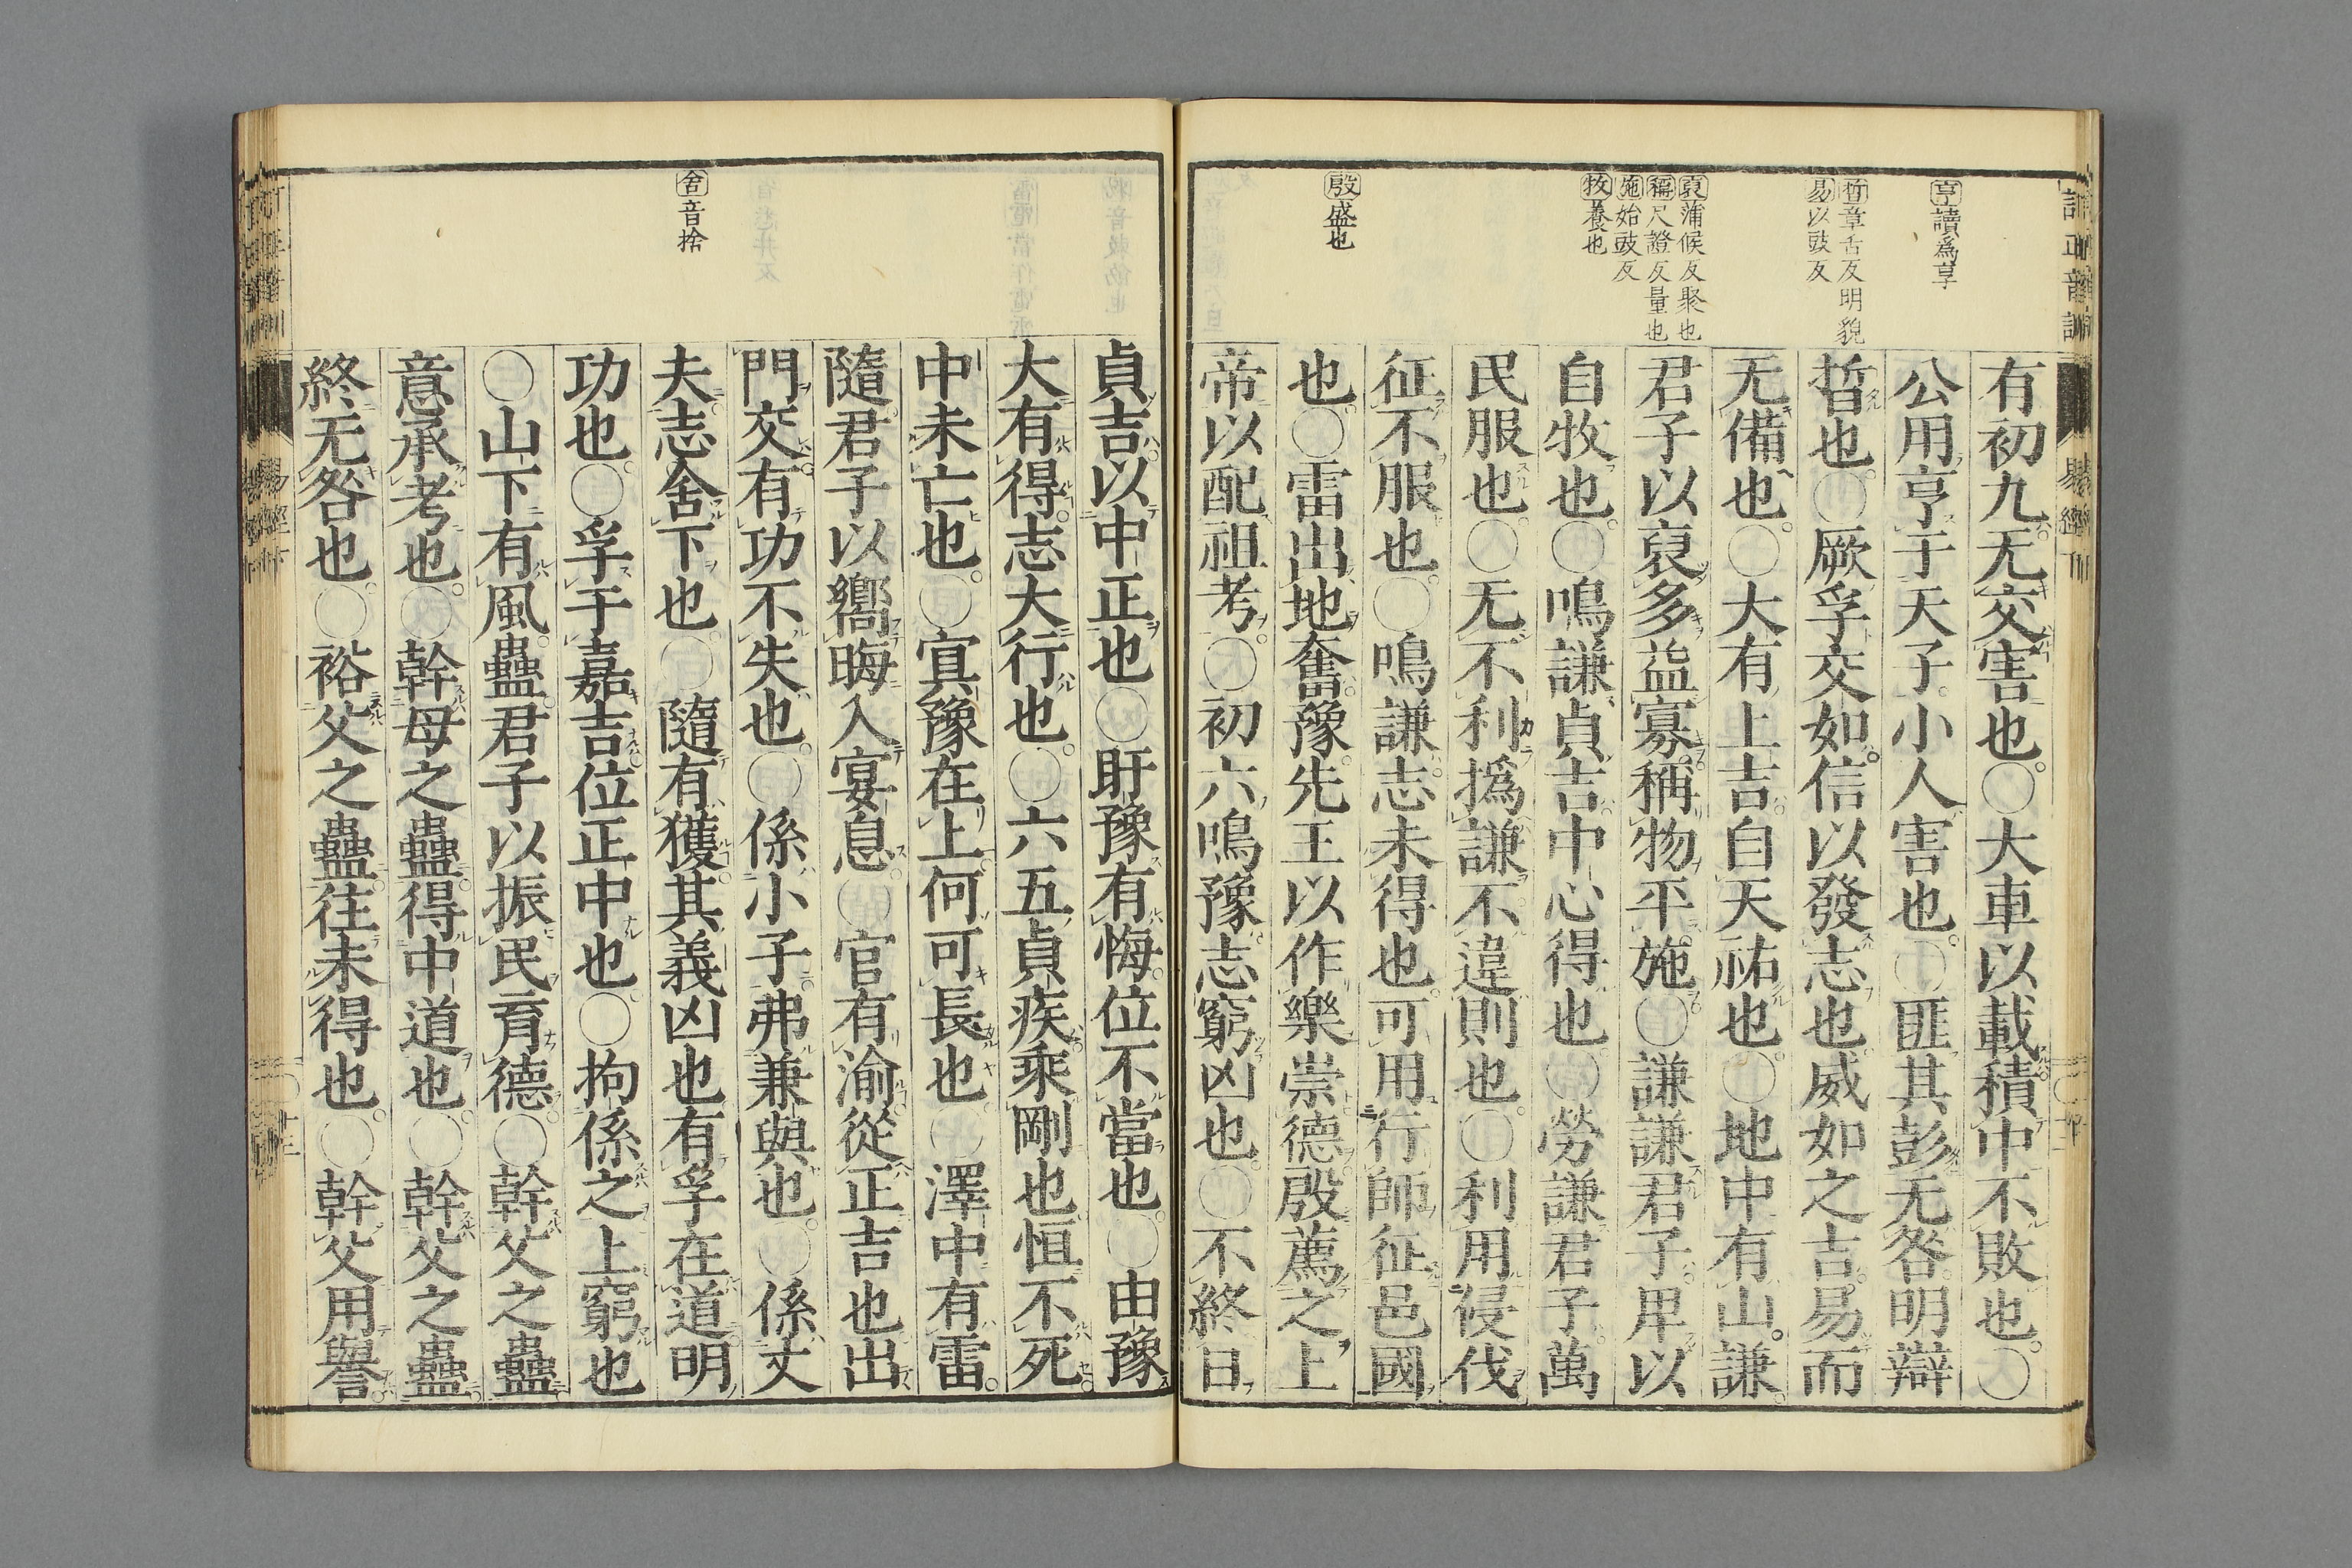 亨讀爲享
晢章舌反明貌
易以豉反
裒蒲候反聚也
稱尺證反量也
施始豉反
牧養也
殷盛也
有初九无交害也○大車以載積中不敗也○
公用亨于天子小人害也○匪其彭无咎明辯
晢也○厥孚交如信以發志也威如之吉易而
无備也○大有上吉自天祐也○地中有山謙
君子以裒多益寡稱物平施○謙謙君子卑以
自牧也○鳴謙貞吉中心得也○勞謙君子萬
民服也○无不利撝謙不違則也○利用侵伐
征不服也○鳴謙志未得也可用行師征邑國
也○雷出地奮豫先王以作樂崇德殷薦之上
帝以配祖考○初六鳴豫志窮凶也○不終日
舍音捨
貞吉以中正也○盱豫有悔位不當也○由豫
大有得志大行也○六五貞疾乘剛也恒不死
中未亡也○冥豫在上何可長也○澤中有雷
隨君子以嚮晦入宴息○官有渝從正吉也出
門交有功不失也○係小子弗兼與也○係丈
夫志舍下也○隨有獲其義凶也有孚在道明
功也○孚于嘉吉位正中也○拘係之上窮也
○山下有風蠱君子以振民育德○幹父之蠱
意承考也○幹母之蠱得中道也○幹父之蠱
終无咎也○裕父之蠱往未得也○幹父用譽